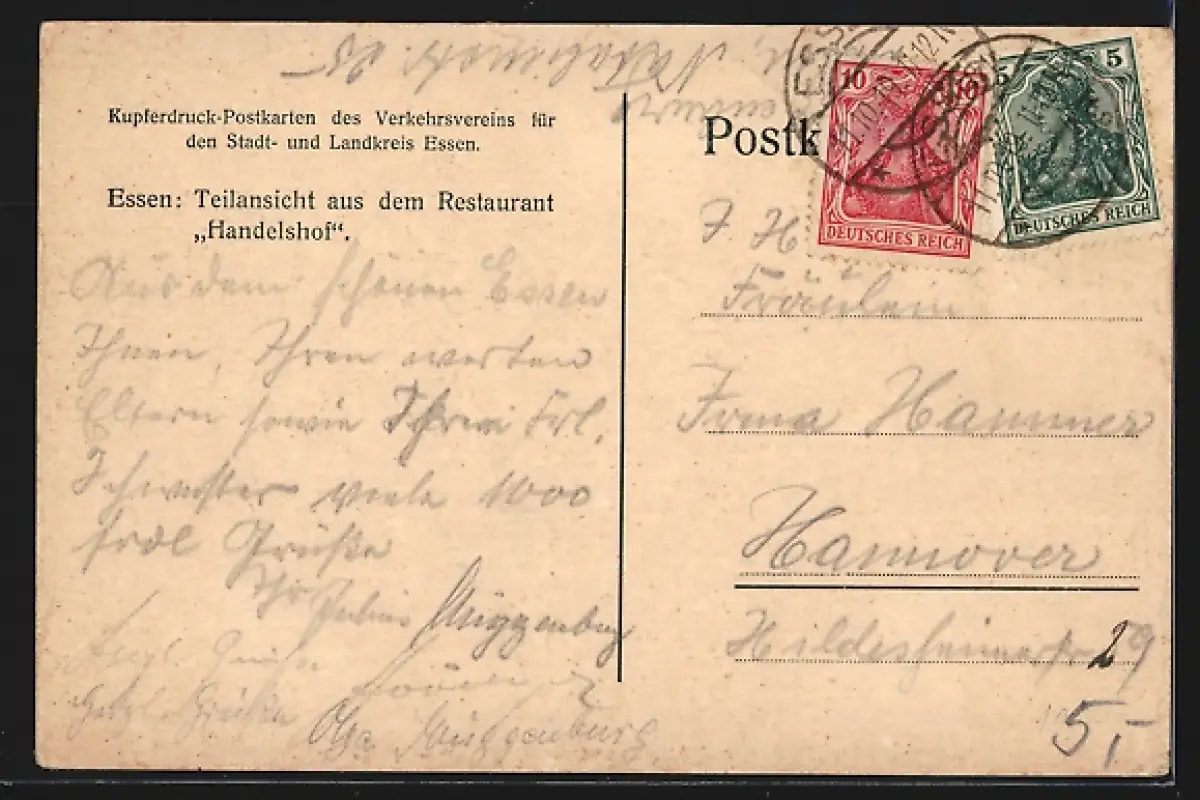 Kupferdruck-Postkarten des Verkehrsvereins für
den Stadt- und Landkreis Essen.
Essen: Teilansicht aus dem Restaurant
„Handelshof“.
Aus dem schönen Essen
Ihnen, Ihren werten
Eltern sowie Ihrem Frl.
Schwester viele 1000
Grüße
Ihr Muggenburg
Herzl. Grüße
Muggenburg
Postk
10 10
DEUTSCHES REICH
5 5
DEUTSCHES REICH
Fräulein
Irma Hammer
Hannover
Hildesheimerstr 29
5,-